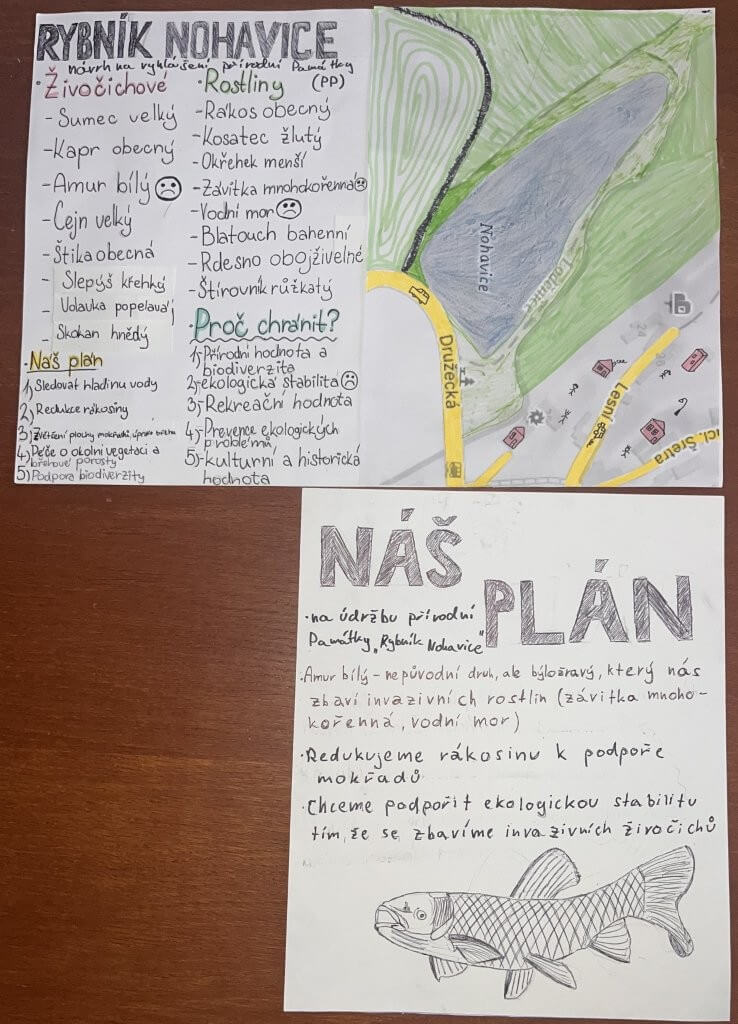 RYBNÍK NOHAVICE
návrh na vyhlášení přírodní Památky
(PP)
· Živočichové
- Sumec velký
- Kapr obecný
- Amur bílý
- Cejn velký
- Štika obecná
- Slepýš křehký
- Volavka popelavá
- Skokan hnědý
· Náš plán
1) Sledovat hladinu vody
2) Redukce rákosiny
3) Zvětšení plochy mokřadů, úprava břehu
4) Péče o okolní vegetaci a
břehové porosty
5) Podpora biodiverzity
· Rostliny
- Rákos obecný
- Kosatec žlutý
- Okřehek menší
- Závitka mnohokořenná
- Vodní mor
- Blatouch bahenní
- Rdesno obojživelné
- Štírovník růžkatý
· Proč chránit?
1) Přírodní hodnota a
biodiverzita
2) ekologická stabilita
3) - Rekreační hodnota
4) - Prevence ekologických
problémů
5) - kulturní a historická
hodnota
Nohavice
Loděnice
Družecká
Lesní
24
26
NÁŠ
PLÁN
· na údržbu přírodní
Památky „Rybník Nohavice"
· Amur bílý - nepůvodní druh, ale býložravý, který nás
zbaví invazivních rostlin (závitka mnoho-
kořenná, vodní mor)
· Redukujeme rákosinu k podpoře
mokřadů
· Chceme podpořit ekologickou stabilitu
tím, že se zbavíme invazivních živočichů